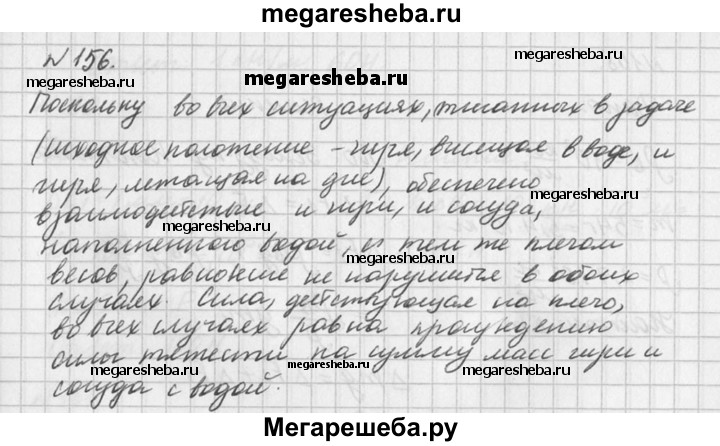 megaresheba.ru
№156.
megaresheba.ru
megaresheba.ru
megaresheba.ru
Поскольку во всех ситуациях, описанных в задаче
(исходное положение - гиря, висящая в воде, и
гиря, лежащая на дне), обеспечено
megaresheba.ru
взаимодействие и гири, и сосуда,
наполненного водой, с тем же плечом
megaresheba.ru
весов, равновесие не нарушится в обоих
случаях. Сила, действующая на плечо,
во всех случаях равна произведению
megaresheba.ru
megaresheba.ru
силы тяжести на сумму масс гири и
сосуда с водой.
Мегарешеба.ру